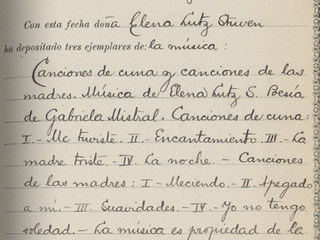 Con esta fecha doña Elena Lutz Stuven
ha depositado tres ejemplares de: la música :
Canciones de cuna y canciones de las
madres. Música de Elena Lutz S. Poesía
de Gabriela Mistral. Canciones de cuna:
I.- Me tuviste. II.- Encantamiento. III.- La
madre triste. -IV. La noche. - Canciones
de las madres: I.- Meciendo. - II. Apegado
a mí. - III. Suavidades. - IV.- Yo no tengo
soledad. - La música es propiedad de la